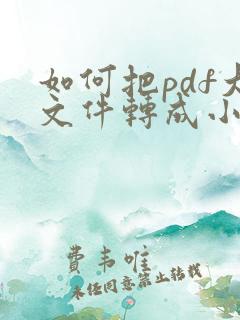 如何把pdf大
文件轉成小
費韦唯
未经同意禁止转载